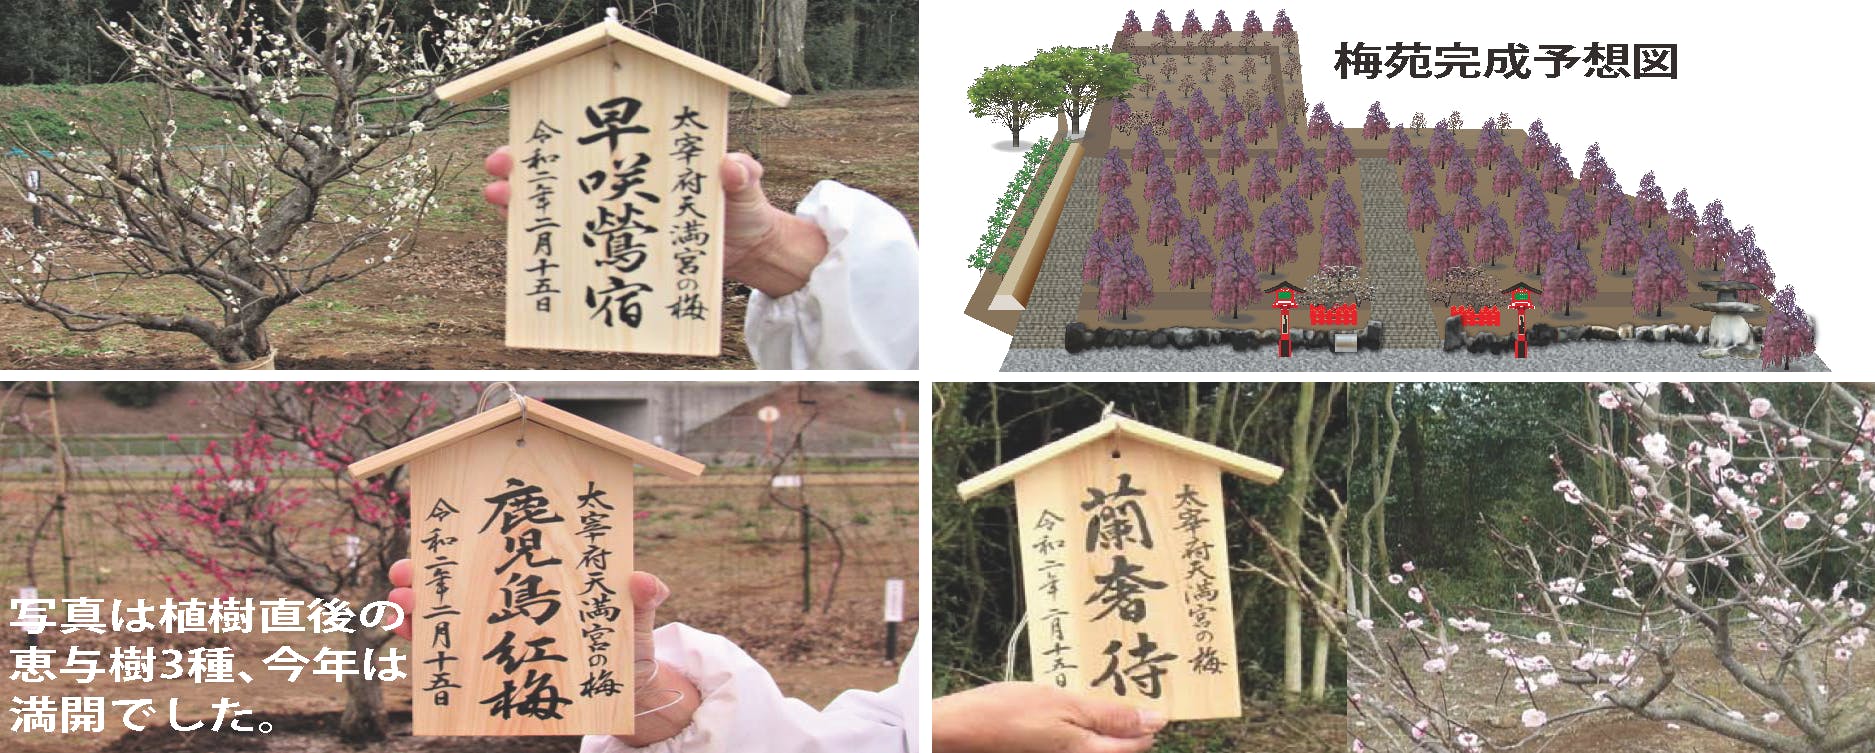 太宰府天満宮の梅
早咲鶯宿
令和二年二月十五日
梅苑完成予想図
太宰府天満宮の梅
鹿児島紅梅
令和二年二月十五日
写真は植樹直後の
恵与樹3種、今年は
満開でした。
太宰府天満宮の梅
蘭奢待
令和二年二月十五日